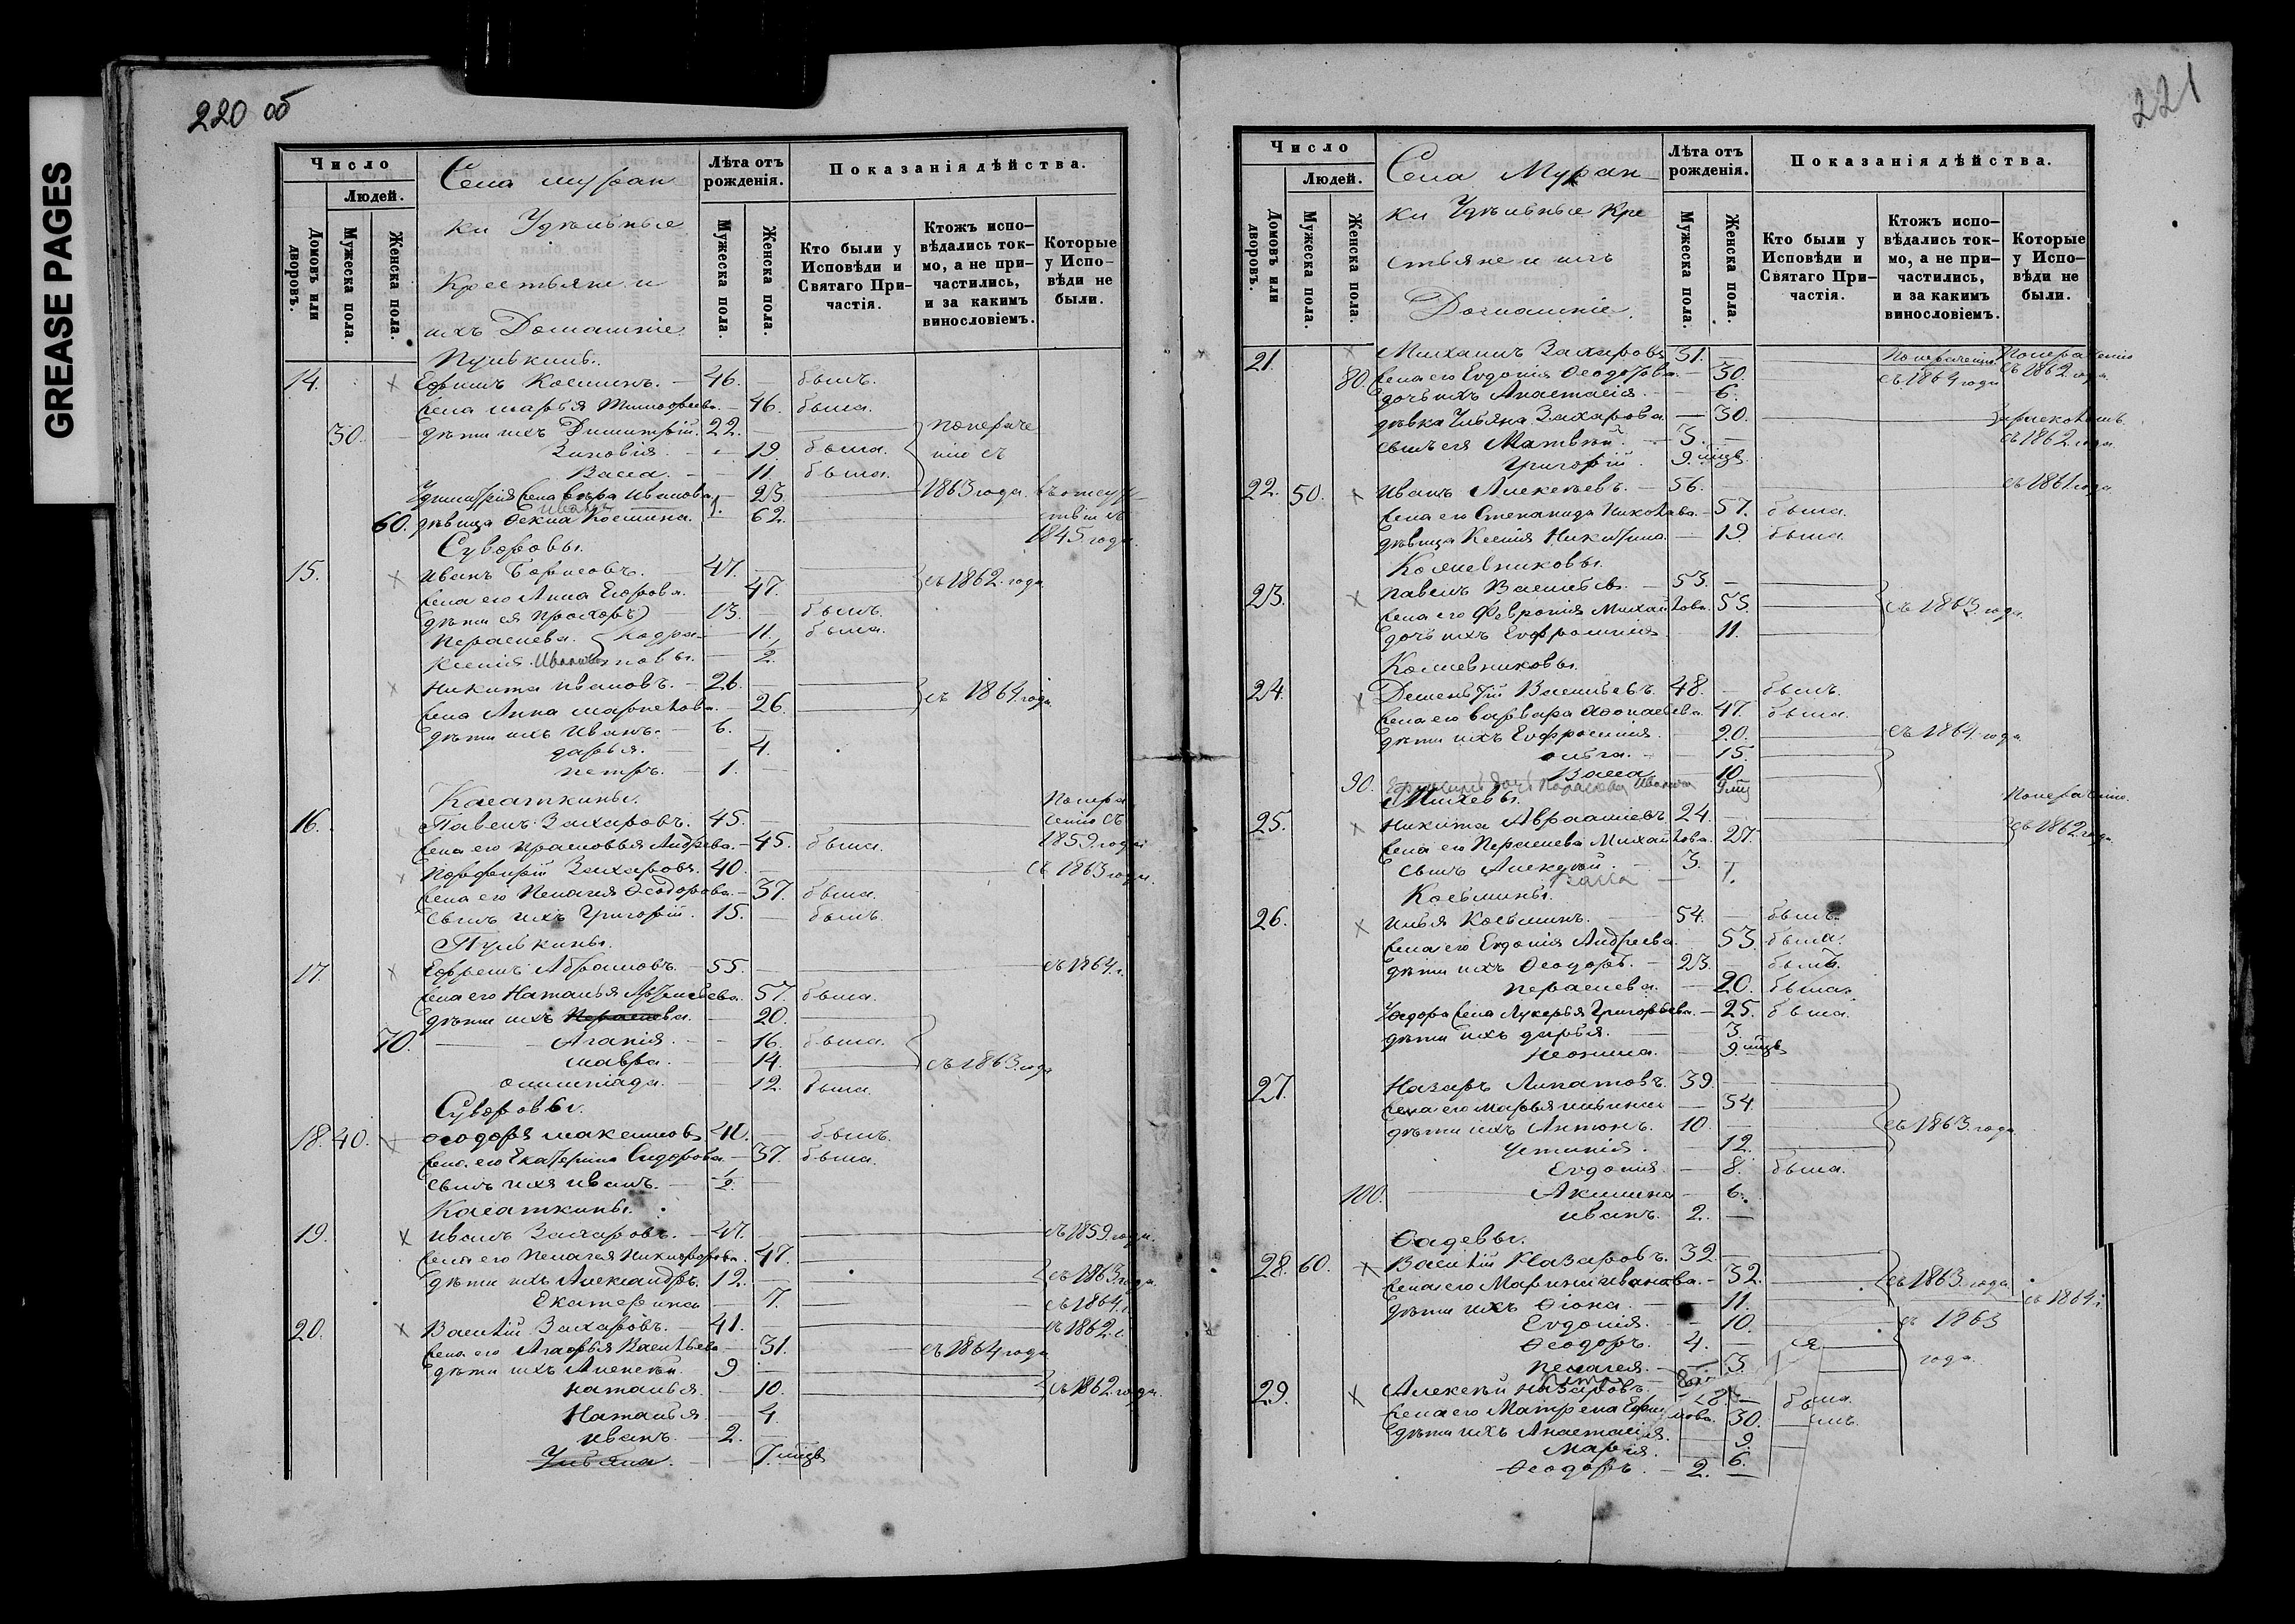 GREASE PAGES
220 об
Число
Людей.
Домовъ или дворовъ.
Мужеска пола.
Женска пола.
Села Муран
ки Удѣльные
Крестьяне и
ихъ Домашніе
Лѣта отъ рожденія.
Мужеска пола.
Женска пола.
Показанія дѣйства.
Кто были у Исповѣди и Святаго Причастія.
Ктожъ исповѣдались токмо, а не причастились, и за какимъ винословіемъ.
Которые у Исповѣди не были.
14. Ефимъ Косминъ. 46. былъ.
жена Марья Тимофеева. 46. была.
30. дѣти ихъ Димитрій. 22. по нераче
Зиновія. 19. была. нію съ
Васса. 11. была.
У Димитрія жена Вѣра Иванова 23. 1863 года. въ отсут
Иванъ 1.
60. дѣвица Фекла Космина. 62. ствіи съ
1845 года.
Суворовы.
15. Иванъ Борисовъ. 47. съ 1862 года
жена его Анна Егорова. 47.
дѣти ея Прохоръ 13. былъ.
Параскева. 11. была.
Ксенія. Ивановы. 1/2.
Никита Ивановъ. 26. съ 1864 года
жена Анна 26.
дѣти ихъ Иванъ. 6.
Дарья. 4.
Петръ. 1.
Калаткины. По нера
16. Павелъ Захаровъ. 45. ченію съ
жена его Прасковья Андрева. 45. была. 1859 года
Порфирій Захаровъ. 40. съ 1863 года.
жена его Пелагея Ѳеодорова. 37. была.
сынъ ихъ Григорій. 15. былъ.
17. Ефремъ Абрамовъ. 55. съ 1864 г.
жена его Наталья 57. была.
дѣти ихъ Параскева. 20.
70. Агапія. 16. была.
Мавра. 14. съ 1863 года
Олимпіада. 12. была.
Суворовы.
18. 40. Ѳеодоръ Максимовъ 40. былъ.
жена его Екатерина Сидорова. 37. была.
сынъ ихъ Иванъ. 1/2.
Калаткины.
19. Иванъ Захаровъ. 47. съ 1859 года.
жена его Пелагея Никифорова. 47.
дѣти ихъ Александръ. 12. съ 1863 года.
Екатерина 7. съ 1864 г.
20. Василій Захаровъ. 41. съ 1862 г.
жена его Агафья Васильева 31. съ 1864 года
дѣти ихъ Алексѣй. 9
Наталья. 10. съ 1862 года.
Наталья 4.
Иванъ. 2.
Ульяна. 7. мцвъ
221
Число
Людей.
Домовъ или дворовъ.
Мужеска пола.
Женска пола.
Села Муран
ки Удѣльные Кре
стьяне и ихъ
Домашніе.
Лѣта отъ рожденія.
Мужеска пола.
Женска пола.
Показанія дѣйства.
Кто были у Исповѣди и Святаго Причастія.
Ктожъ исповѣдались токмо, а не причастились, и за какимъ винословіемъ.
Которые у Исповѣди не были.
21. Михаилъ Захаровъ. 31. По нераченію По нераченію
80. жена его Евдокія Ѳеодотова. 30. съ 1864 года съ 1862 года
дочь ихъ Анастасія. 6.
дѣвка Ульяна Захарова. 30.
сынъ ея Матвѣй. 3. съ 1862 года
Григорій. 9. мцвъ
22. 50. Иванъ Алексѣевъ. 56. съ 1861 года.
жена его Степанида Николаева. 57. была.
дѣвица Ксенія Никитина. 19. была.
23. Павелъ Васильевъ. 53.
жена его Февронія Михайлова. 55. съ 1863 года.
дочь ихъ Евфросинія. 11.
24. Дементій Васильевъ. 48. былъ.
жена его Варвара Аѳонасьева. 47. была.
дѣти ихъ Евфросинія. 20. съ 1864 года
Ольга. 15.
90. Васса 10.
Михевы. По нераченію.
25. Никита Авраамовъ 24. съ 1862 года.
жена его Параскева Михайлова. 27.
сынъ Алексѣй. 3.
Васса 1.
Косьмины.
26. Илья Косьминъ. 54. былъ.
жена его Евдокія Андреева. 53. была.
дѣти ихъ Ѳеодоръ. 23. былъ.
Параскева. 20. была.
У Ѳедора жена Лукерья Григорьева. 25. была.
дѣти ихъ Дарья. 3.
Неонила. 9. мцвъ
27. Назаръ Липатовъ. 39.
жена его Марья Ильина 54.
дѣти ихъ Антонъ. 10. съ 1863 года
Устинія. 12.
Евдокія. 8. была.
100. Акилина 6.
Иванъ. 2.
Фадевы.
28. 60. Василій Назаровъ. 32.
жена его Марина Иванова. 32. съ 1863 года.
дѣти ихъ Ѳіона. 11. съ 1864 г.
Евдокія. 10. съ 1863
Ѳеодоръ. 4. года
Пелагея. 3.
29. Алексѣй Назаровъ. 28.
жена его Матрена Ефимова. 30.
дѣти ихъ Анастасія. 9.
Марія. 6.
Ѳеодоръ. 2.